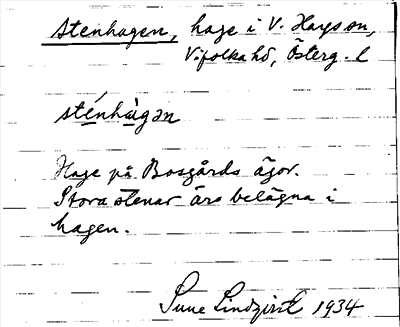 Stenhagen, hage i V. Harg sn,
Vifolka hd, Österg. l
sténhàgən
Hage på Bosgårds ägor.
Stora stenar äro belägna i
hagen.
Sune Lindqvist 1934